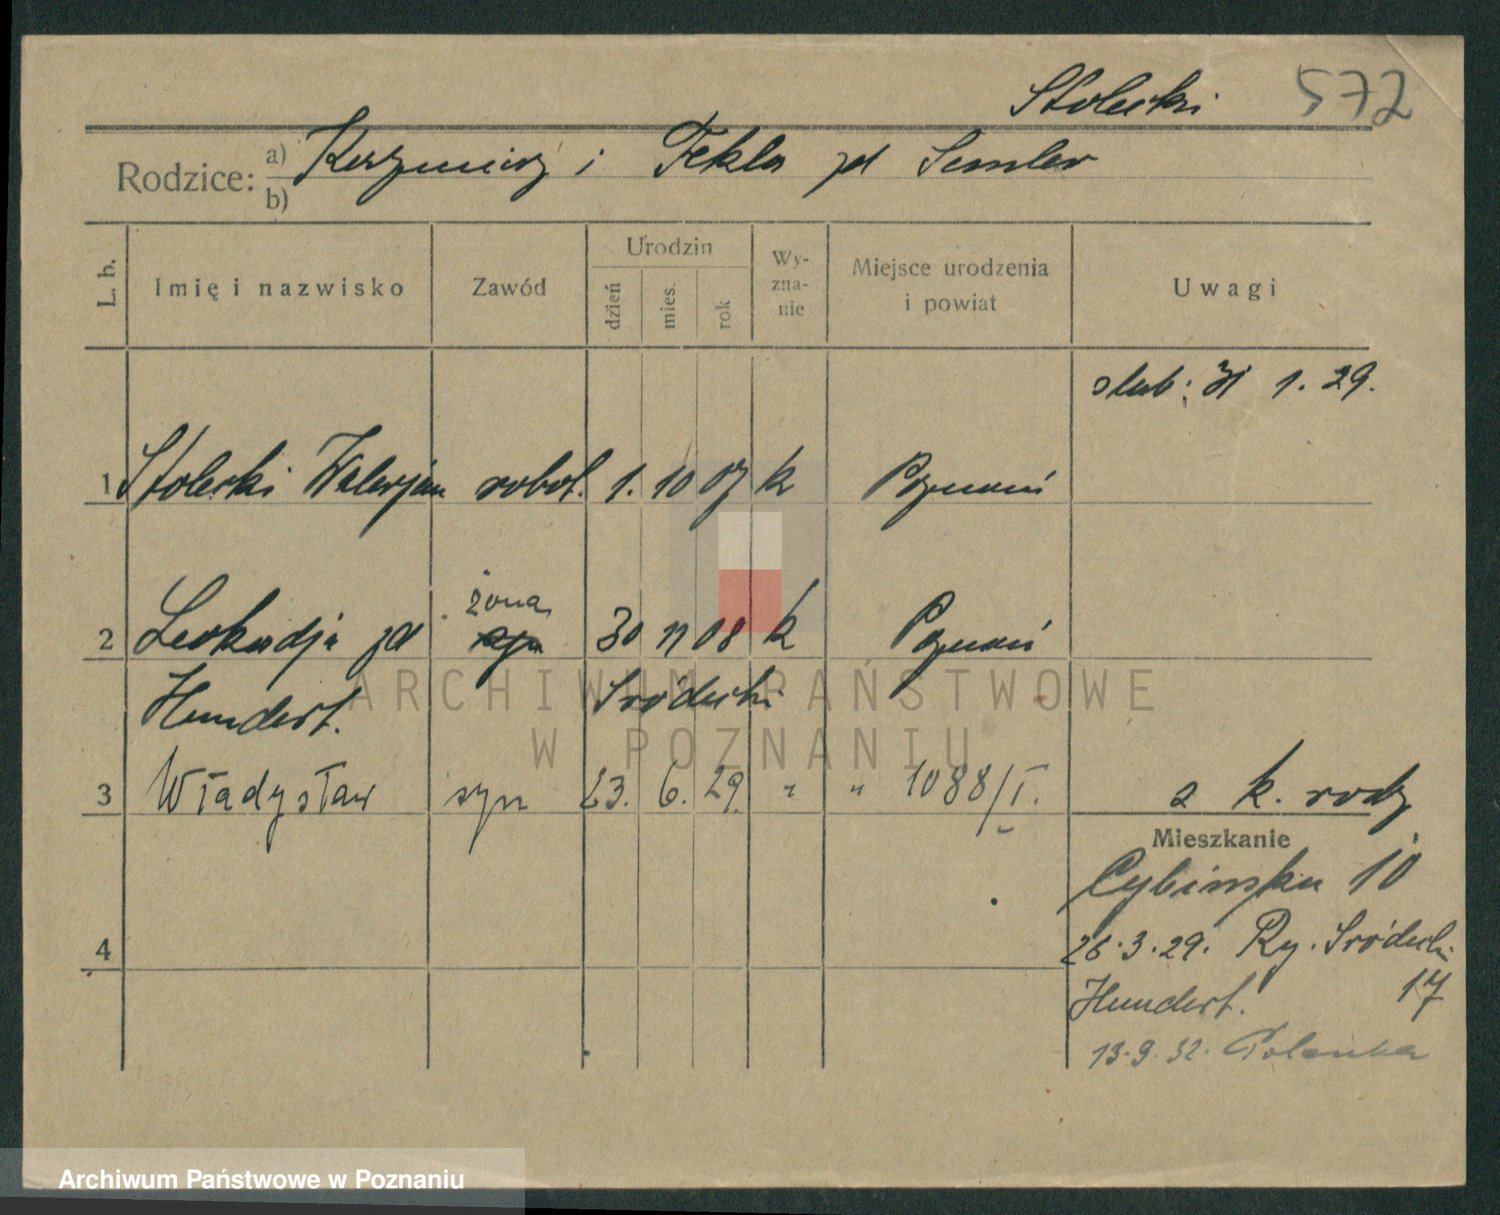 Stolecki 572
Rodzice: a) Kazimierz i Tekla zd Semler
b)
L. b. Imię i nazwisko Zawód Urodzin dzień mies. rok Wy-zna-nie Miejsce urodzenia i powiat Uwagi
ślub: 1. 29.
1 Stolecki Walerjan robot. 1. 10 07 k Poznań
żona
2 Leokadja zd 30 11 08 k Poznań
Hundert. Śródecki
3 Władysław syn 23. 6. 29. " " 1088/I. z k. rodz
Mieszkanie
Cybińska 10
4 26.3.29. Ry. Śródecki
Hundert. 17
13.9.32. Polanka
ARCHIWUM PAŃSTWOWE
W POZNANIU
Archiwum Państwowe w Poznaniu